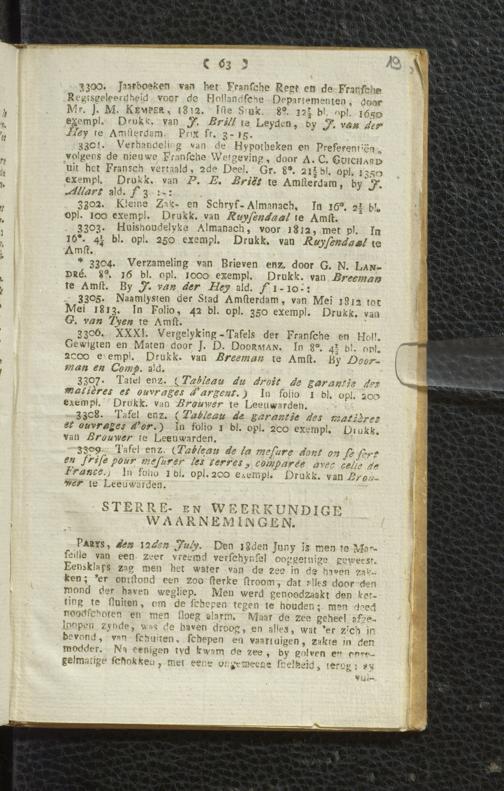 ( 63 )
19
3300. Jaarboeken van het Fransche Regt en de Fransche
Regtsgeleerdheid voor de Hollandsche Departementen, door
Mr. J. M. KEMPER, 1812. Iste Stuk. 8°. 12½ bl. opl. 1650
exempl. Drukk. van J. Brill te Leyden, by J. van der
Hey te Amsterdam. Prix fr. 3-15.
3301. Verhandeling van de Hypotheken en Preferentiën,
volgens de nieuwe Fransche Wetgeving, door A. C. GUICHARD
uit het Fransch vertaald, 2de Deel. Gr. 8°. 21½ bl. opl. 1350
exempl. Drukk. van P. E. Briët te Amsterdam, by J.
Allart ald. f 3 :-:
3302. Kleine Zak- en Schryf-Almanach. In 16°. 2½ bl.
opl. 100 exempl. Drukk. van Ruysendaal te Amst.
3303. Huishoudelyke Almanach, voor 1812, met pl. In
16°. 4½ bl. opl. 250 exempl. Drukk. van Ruysendaal te
Amst.
* 3304. Verzameling van Brieven enz. door G. N. LAN-
DRÉ. 8°. 16 bl. opl. 1000 exempl. Drukk. van Breeman
te Amst. By J. van der Hey ald. f 1-10-:
3305. Naamlysten der Stad Amsterdam, van Mei 1812 tot
Mei 1813. In Folio, 42 bl. opl. 350 exempl. Drukk. van
G. van Tyen te Amst.
3306. XXXI. Vergelyking-Tafels der Fransche en Holl.
Gewigten en Maten door J. D. DOORMAN. In 8°. 4½ bl. opl.
2000 exempl. Drukk. van Breeman te Amst. By Door-
man en Comp. ald.
3307. Tafel enz. (Tableau du droit de garantie des
matières et ouvrages d'argent.) In folio 1 bl. opl. 200
exempl. Drukk. van Brouwer te Leeuwarden.
3308. Tafel enz. (Tableau de garantie des matières
et ouvrages d'or.) In folio 1 bl. opl. 200 exempl. Drukk.
van Brouwer te Leeuwarden.
3309. Tafel enz. (Tableau de la mesure dont on se sert
en frise pour mesurer les terres, comparée avec celle de
France.) In folio 1 bl. opl. 200 exempl. Drukk. van Brou-
wer te Leeuwarden.
STERRE- EN WEERKUNDIGE
WAARNEMINGEN.
PARYS, den 12den July. Den 18den Juny is men te Mar-
seille van een zeer vreemd verschynsel ooggetuige geweest.
Eensklaps zag men het water van de zee in de haven zak-
ken; 'er ontstond een zoo sterke stroom, dat alles door den
mond der haven wegliep. Men werd genoodzaakt den ket-
ting te sluiten, om de schepen tegen te houden; men deed
noodschoten en men sloeg alarm. Maar de zee geheel afge-
loopen zynde, was de haven droog, en alles, wat 'er zich in
bevond, van schuiten, schepen en vaartuigen, zakte in den
modder. Na eenigen tyd kwam de zee, by golven en onre-
gelmatige schokken, met eene ongemeene snelheid, terug; zy
vul-